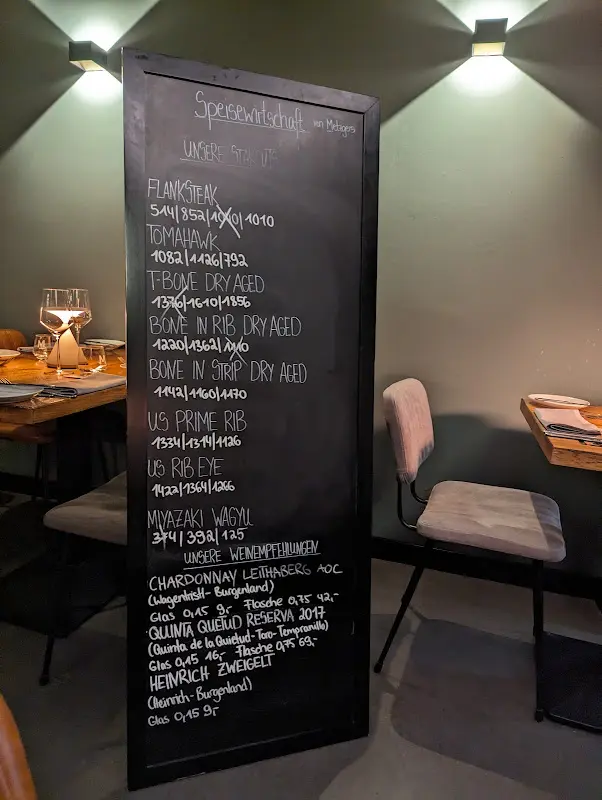 Speisewirtschaft von Metzgers
UNSERE
FLANKSTEAK
514/852/1010/1010
TOMAHAWK
1082/1126/792
T-BONE DRY AGED
1376/1610/1856
BONE IN RIB DRY AGED
1220/1362/1110
BONE IN STRIP DRY AGED
1142/1160/1170
US PRIME RIB
1334/1314/1126
US RIB EYE
1422/1364/1266
MIYAZAKI WAGYU
374/392/125
UNSERE WEINEMPFEHLUNGEN
CHARDONNAY LEITHABERG AOC
(Wagentristl-Burgenland)
Glas 0,15 9,- Flasche 0,75 42,-
QUINTA QUETUD RESERVA 2017
(Quinta de la Quietud-Toro-Tempranillo)
Glas 0,15 16,- Flasche 0,75 69,-
HEINRICH ZWEIGELT
(Heinrich-Burgenland)
Glas 0,15 9,-